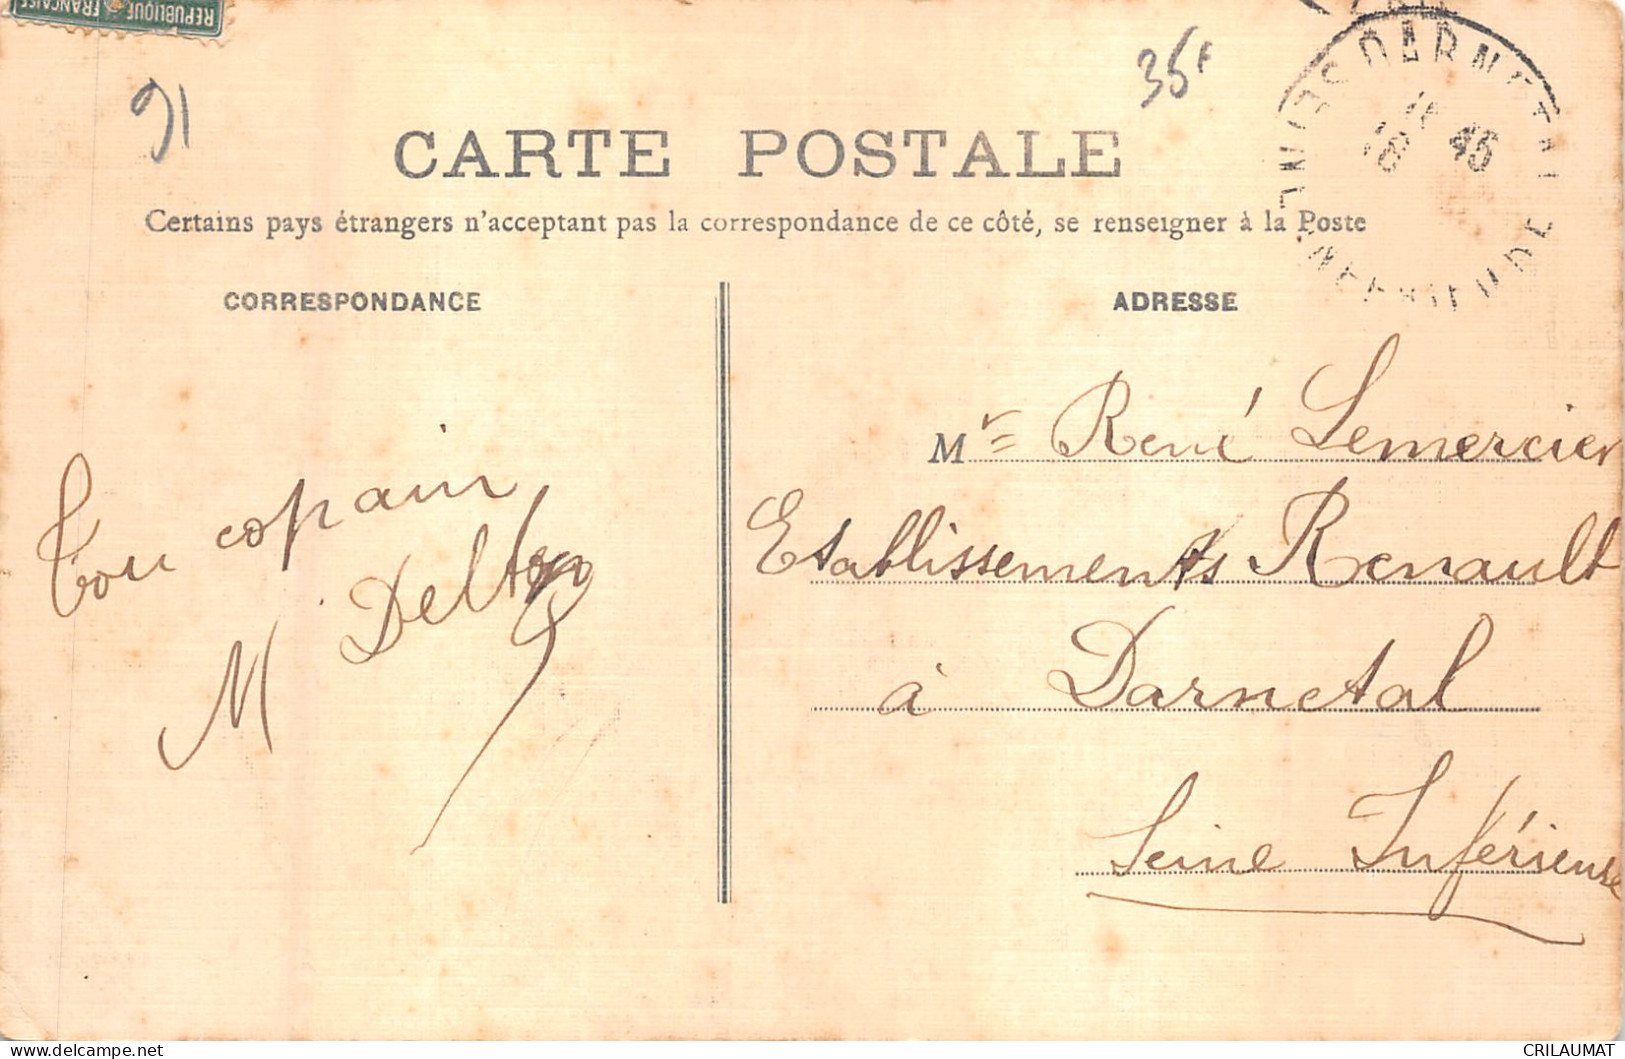 REPUBLIQUE FRANÇAISE
91
35F
CARTE POSTALE
Certains pays étrangers n'acceptant pas la correspondance de ce côté, se renseigner à la Poste
DARNETAL
SEINE INFERIEURE
18 45
CORRESPONDANCE
Ton copain
M Delton
ADRESSE
Mr René Lemercier
Etablissements Renault
à Darnetal
Seine Inférieure
CRILAUMAT